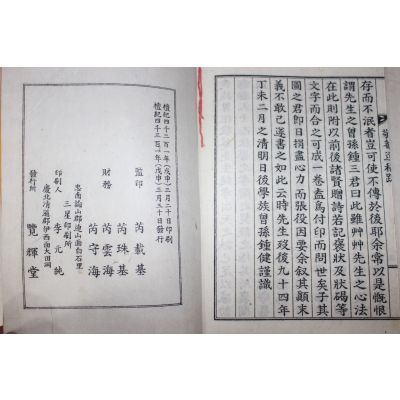 存而不泯者豈可使不傳於後耶余常以是慨恨
謂先生之曾孫鍾三君曰此雖艸艸先生之心法
在此則附以前後諸賢贈詩若記褒狀及狀碣等
文字而合之可成一卷盍爲付印而問世矣子其
圖之君卽日捐盡心力而張役因要余叙其顚末
義不敢已遂書之如此云時先生歿後九十四年
丁未二月之清明日後學族曾孫鍾健謹識
檀紀四千三百一年(戊申)三月二十日印刷
檀紀四千三百一年(戊申)三月三十日發行
監印 芮載基
芮珠基
財務 芮雲海
芮守海
忠南論山郡連山面白石里
三星印刷所
印刷人 李元純
慶北清道郡伊西面大田洞
發行所 覽輝堂